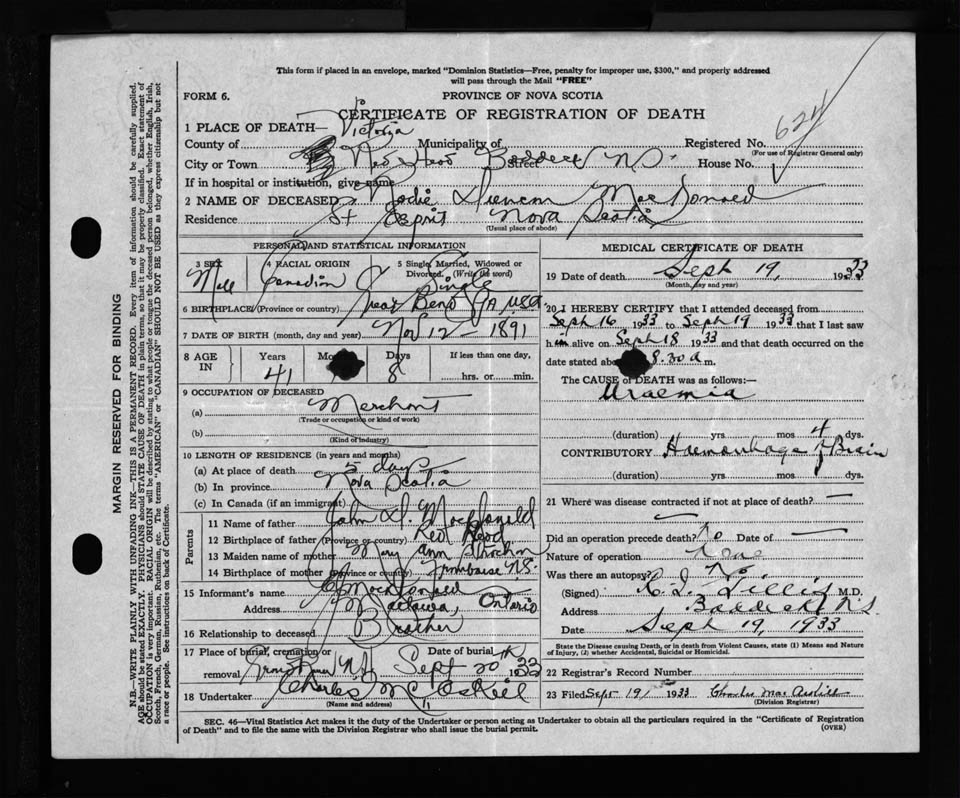 This form if placed in an envelope, marked "Dominion Statistics—Free, penalty for improper use, $300," and properly addressed
will pass through the Mail "FREE"
FORM 6.
PROVINCE OF NOVA SCOTIA
CERTIFICATE OF REGISTRATION OF DEATH
624
1 PLACE OF DEATH—
County of Victoria Municipality of Registered No.
(For use of Registrar General only)
City or Town Red Head Baddeck N.S. Street House No.
If in hospital or institution, give name
2 NAME OF DECEASED Duncan MacDonald
Residence St Esprit Nova Scotia
(Usual place of abode)
PERSONAL AND STATISTICAL INFORMATION
3 SEX 4 RACIAL ORIGIN 5 Single, Married, Widowed or
Divorced. (Write the word)
Male Canadian Single
6 BIRTHPLACE (Province or country) Bend PA USA
7 DATE OF BIRTH (month, day and year) Nov 12 1891
8 AGE IN Years Days If less than one day,
41 8 hrs. or min.
9 OCCUPATION OF DECEASED
(a) Merchant
(Trade or occupation or kind of work)
(b)
(Kind of industry)
10 LENGTH OF RESIDENCE (in years and months)
(a) At place of death 5 days
(b) In province Nova Scotia
(c) In Canada (if an immigrant)
Parents
11 Name of father John D. MacDonald
12 Birthplace of father (Province or country) Red Head
13 Maiden name of mother Mary Ann
14 Birthplace of mother (Province or country) N.S.
15 Informant's name MacDonald
Address Mattawa, Ontario
16 Relationship to deceased Brother
17 Place of burial, cremation or Date of burial
removal N.S. Sept 20th 1933
18 Undertaker Charles McAskill
(Name and address)
MEDICAL CERTIFICATE OF DEATH
19 Date of death Sept 19 1933
(Month, day and year)
20 I HEREBY CERTIFY that I attended deceased from
Sept 16 1933 to Sept 19 1933 that I last saw
him alive on Sept 18 1933 and that death occurred on the
date stated above 8.30 a m.
The CAUSE of DEATH was as follows:—
Uraemia
(duration) yrs mos 4 dys.
CONTRIBUTORY Haemorrhage of Brain
(duration) yrs mos dys.
21 Where was disease contracted if not at place of death? —
Did an operation precede death? No Date of —
Nature of operation None
Was there an autopsy? No
(Signed) C. L. M.D.
Address Baddeck N.S.
Date Sept 19, 1933
State the Disease causing Death, or in death from Violent Causes, state (1) Means and
Nature of Injury, (2) whether Accidental, Suicidal or Homicidal.
22 Registrar's Record Number
23 Filed Sept 19 1933 Charles MacAskill
(Division Registrar)
SEC. 46—Vital Statistics Act makes it the duty of the Undertaker or person acting as Undertaker to obtain all the particulars required in the "Certificate of Registration
of Death" and to file the same with the Division Registrar who shall issue the burial permit.
(OVER)
MARGIN RESERVED FOR BINDING
N.B.—WRITE PLAINLY WITH UNFADING INK—THIS IS A PERMANENT RECORD. Every item of information should be carefully supplied.
AGE should be stated EXACTLY. PHYSICIANS should STATE CAUSE OF DEATH in plain terms, so that it may be properly classified. Exact statement of
OCCUPATION is very important. RACIAL ORIGIN will be described by stating to what people or tongue the deceased person belonged, whether English, Irish,
Scotch, French, German, Russian, Ruthenian, etc. The terms "AMERICAN" or "CANADIAN" SHOULD NOT BE USED as they express citizenship but not
a race or people. See instructions on back of Certificate.